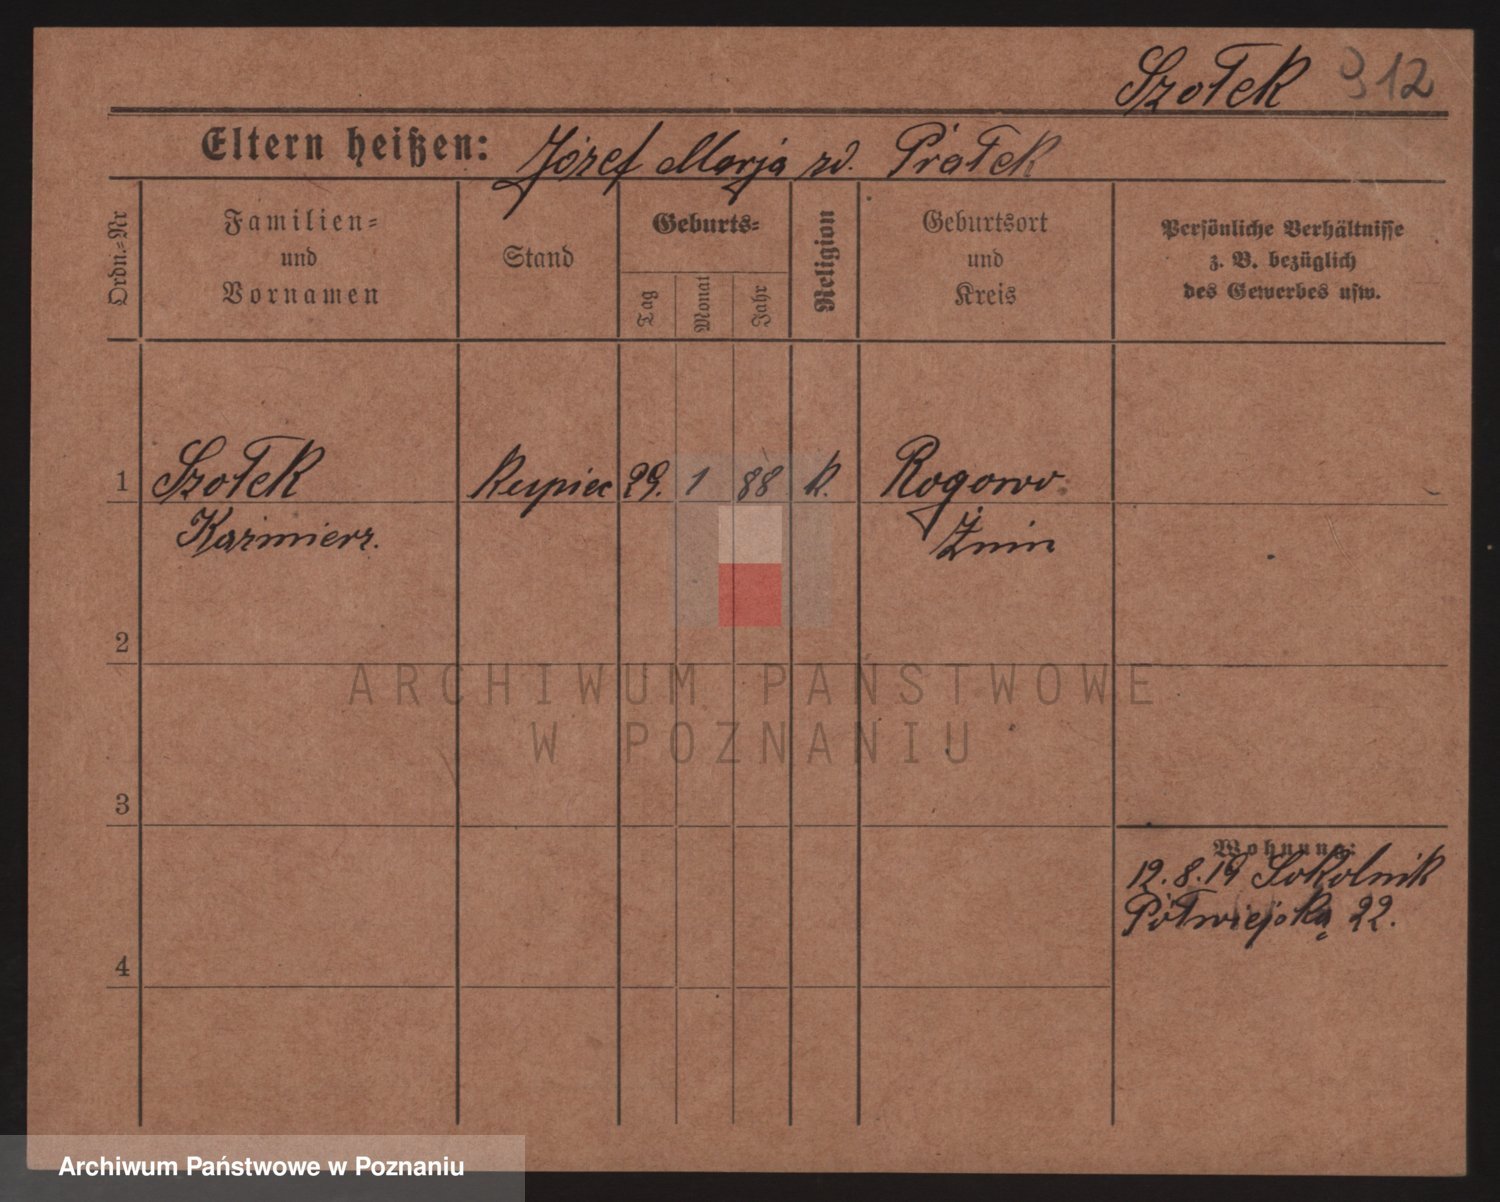 Szołek 312
Eltern heißen: Józef Marja zd. Piątek
Ordn.=Nr
Familien=
und
Vornamen
Stand
Geburts=
Tag
Monat
Jahr
Religion
Geburtsort
und
Kreis
Persönliche Verhältnisse
z. B. bezüglich
des Gewerbes usw.
1 Szołek Kupiec 29. 1 88 k. Rogowo
Kazimierz. Żnin
2
ARCHIWUM PAŃSTWOWE
W POZNANIU
3
Wohnung:
12.8.19 Sokolnik
Półwiejska 22.
4
Archiwum Państwowe w Poznaniu